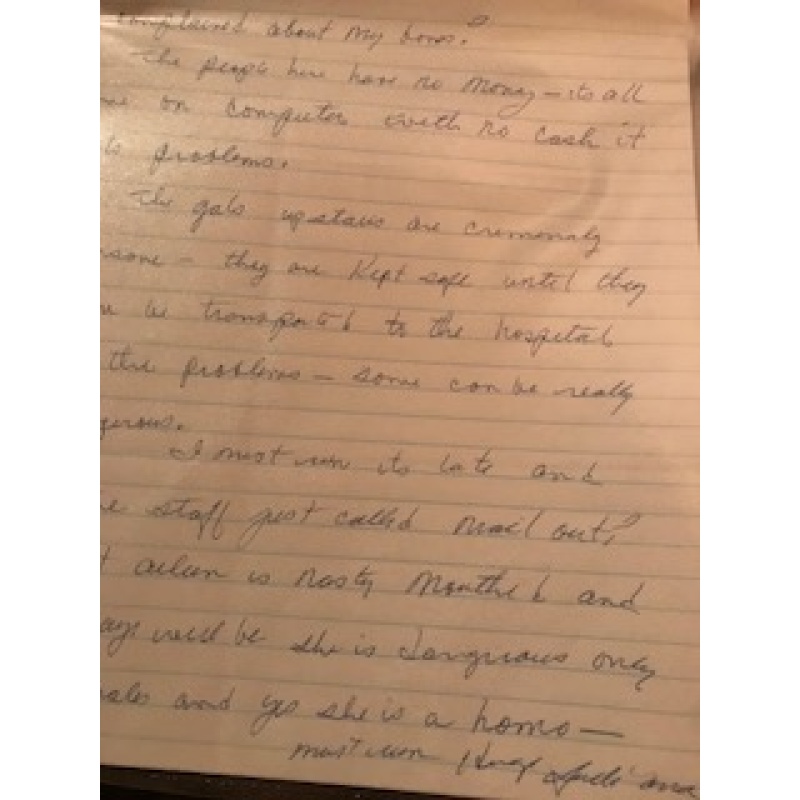 complained about my boss.
The people here have no money – its all
on computer with no cash it
problems.
The gals upstairs are cremenaly
– they are Kept safe until they
be transported to the hospital
the problems – some can be really
I must run its late and
staff just called mail out!
is nasty Mouthed and
will be she is danguous only
and yes she is a homo —
must run Hugs